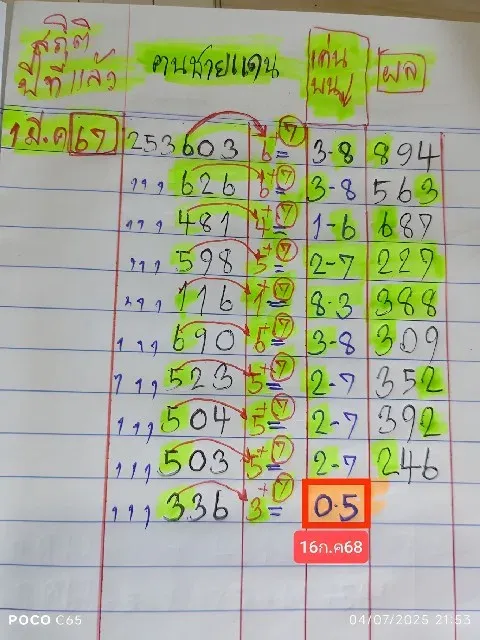 สถิติ
ปีที่แล้ว
คนชายแดน
เด่น
บนปู
ผล
1 มี.ค 67 253603 6+7= 3-8 894
,,, 626 6+7= 3-8 563
,,, 481 4+7= 1-6 687
,,, 598 5+7= 2-7 227
,,, 116 1+7= 8-3 388
,,, 690 6+7= 3-8 309
,,, 523 5+7= 2-7 352
,,, 504 5+7= 2-7 392
,,, 503 5+7= 2-7 246
,,, 336 3+7= 0.5
16ก.ค68
POCO C65
04/07/2025 21:53